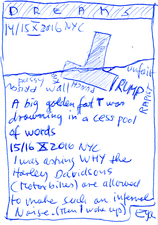 DREAMS
14/15 X 2016 NYC
unfair
TRUMP
wall
A big golden fat T was
drowning in a cess pool
of words
15/16 X 2016 NYC
I was asking WHY the
Harley Davidsons
(motorbikes) are allowed
to make such an infernal
Noise. (then I woke up)